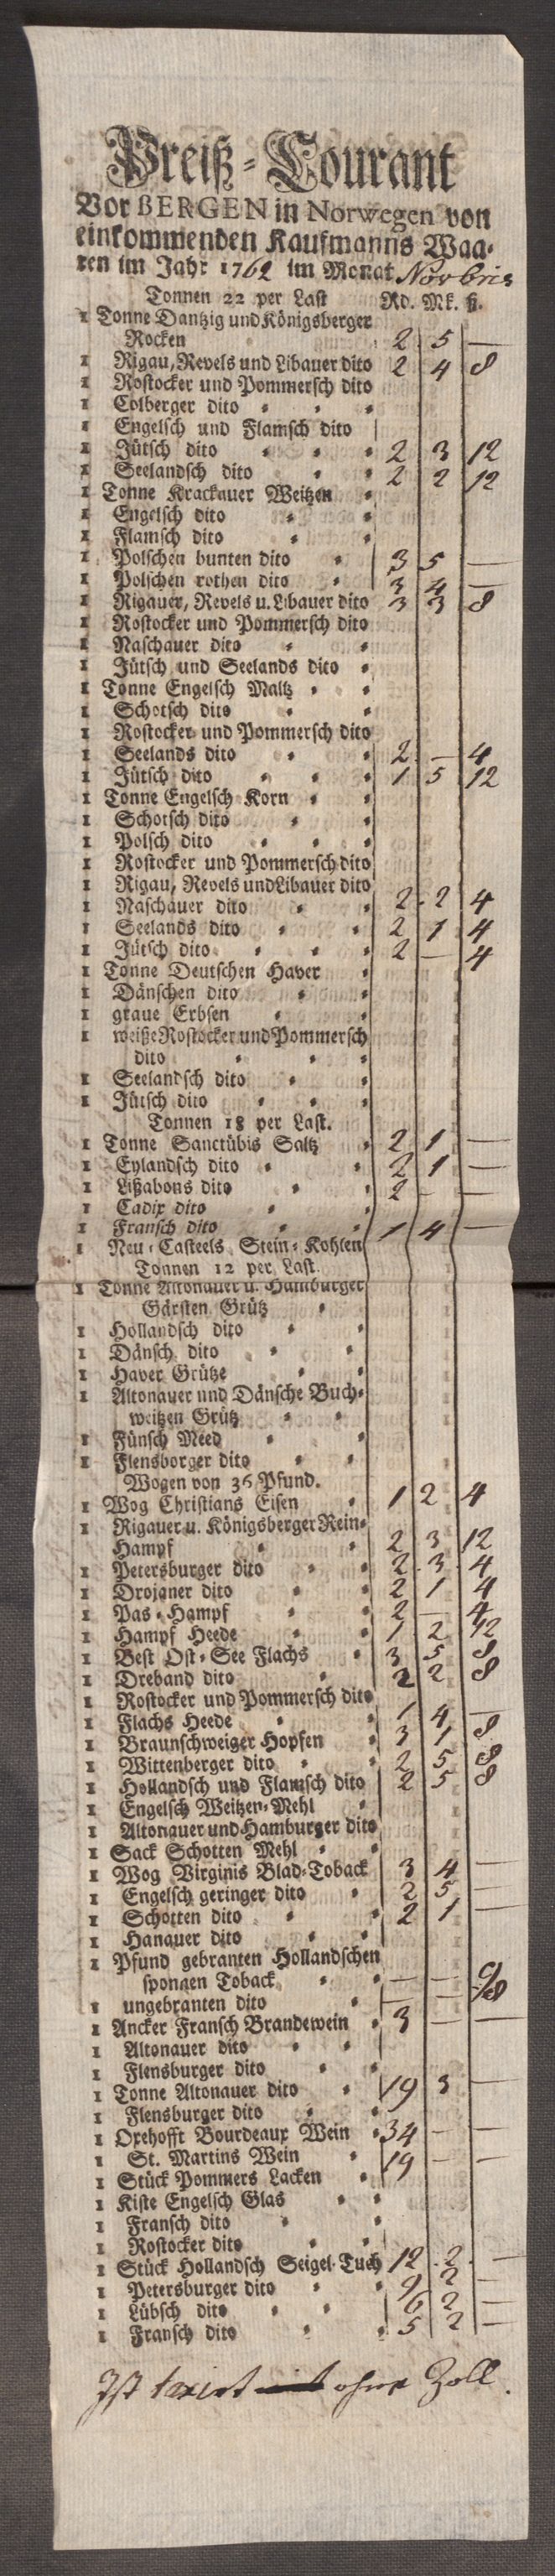 Preiß-Courant
Vor BERGEN in Norwegen von
einkommenden Kaufmanns Waa-
ren im Jahr 1762 im Monat Novbris
Tonnen 22 per Last Rd. Mk. ß.
1 Tonne Dantzig und Königsberger
Rocken 2 5 —
1 Rigau, Revels und Libauer dito 2 4 8
1 Rostocker und Pommersch dito
1 Colberger dito
1 Engelsch und Flamsch dito
1 Jütsch dito 2 3 12
1 Seelandsch dito 2 2 12
1 Tonne Krackauer Weitzen
1 Engelsch dito
1 Flamsch dito
1 Polschen bunten dito 3 5 —
1 Polschen rothen dito 3 4 —
1 Rigauer, Revels u. Libauer dito 3 3 8
1 Rostocker und Pommersch dito
1 Naschauer dito
1 Jütsch und Seelands dito
1 Tonne Engelsch Maltz
1 Schotsch dito
1 Rostocker und Pommersch dito
1 Seelands dito 2 — 4
1 Jütsch dito 1 5 12
1 Tonne Engelsch Korn
1 Schotsch dito
1 Polsch dito
1 Rostocker und Pommersch dito
1 Rigau, Revels und Libauer dito
1 Naschauer dito 2 2 4
1 Seelands dito 2 1 4
1 Jütsch dito 2 — 4
1 Tonne Deutschen Haver
1 Dänschen dito
1 graue Erbsen
1 weiße Rostocker und Pommersch
dito
1 Seelandsch dito
1 Jütsch dito
Tonnen 18 per Last.
1 Tonne Sanctübis Saltz 2 1 —
1 Eylandsch dito 2 1 —
1 Lißabons dito 2 — —
1 Cadix dito
1 Fransch dito 1 4 —
1 Neu-Casteels Stein-Kohlen
Tonnen 12 per Last.
1 Tonne Altonauer u. Hamburger
Gärsten Grütz
1 Hollandsch dito
1 Dänsch dito
1 Haver Grütze
1 Altonauer und Dänsche Buch-
weitzen Grütz
1 Fünsch Meed
1 Flensborger dito
Wogen von 36 Pfund.
1 Wog Christians Eisen 1 2 4
1 Rigauer u. Königsberger Rein-
Hampf 2 3 12
1 Petersburger dito 2 3 4
1 Drojaner dito 2 1 4
1 Pas-Hampf 2 — 4
1 Hampf Heede 1 2 12
1 Best Ost-See Flachs 3 5 8
1 Dreband dito 2 2 8
1 Rostocker und Pommersch dito
1 Flachs Heede 1 4 —
1 Braunschweiger Hopfen 3 1 8
1 Wittenberger dito 2 5 8
1 Hollandsch und Flamsch dito 2 5 8
1 Engelsch Weitzen-Mehl
1 Altonauer und Hamburger dito
1 Sack Schotten Mehl
1 Wog Virginis Blad-Toback 3 4 —
1 Engelsch geringer dito 2 5 —
1 Schotten dito 2 1 —
1 Hanauer dito
1 Pfund gebranten Hollandschen
spongen Toback — —
1 ungebranten dito — —
1 Ancker Fransch Brandewein 3 — —
1 Altonauer dito
1 Flensburger dito
1 Tonne Altonauer dito 19 3 —
1 Flensburger dito
1 Oxehofft Bourdeaux Wein 34 — —
1 St. Martins Wein 19 — —
1 Stück Pommers Lacken
1 Kiste Engelsch Glas
1 Fransch dito
1 Rostocker dito
1 Stück Hollandsch Seigel-Tuch 12 2 —
1 Petersburger dito 9 2 —
1 Lübsch dito 6 2 —
1 Fransch dito 5 2 —
Ist taxirt ohne Zoll.